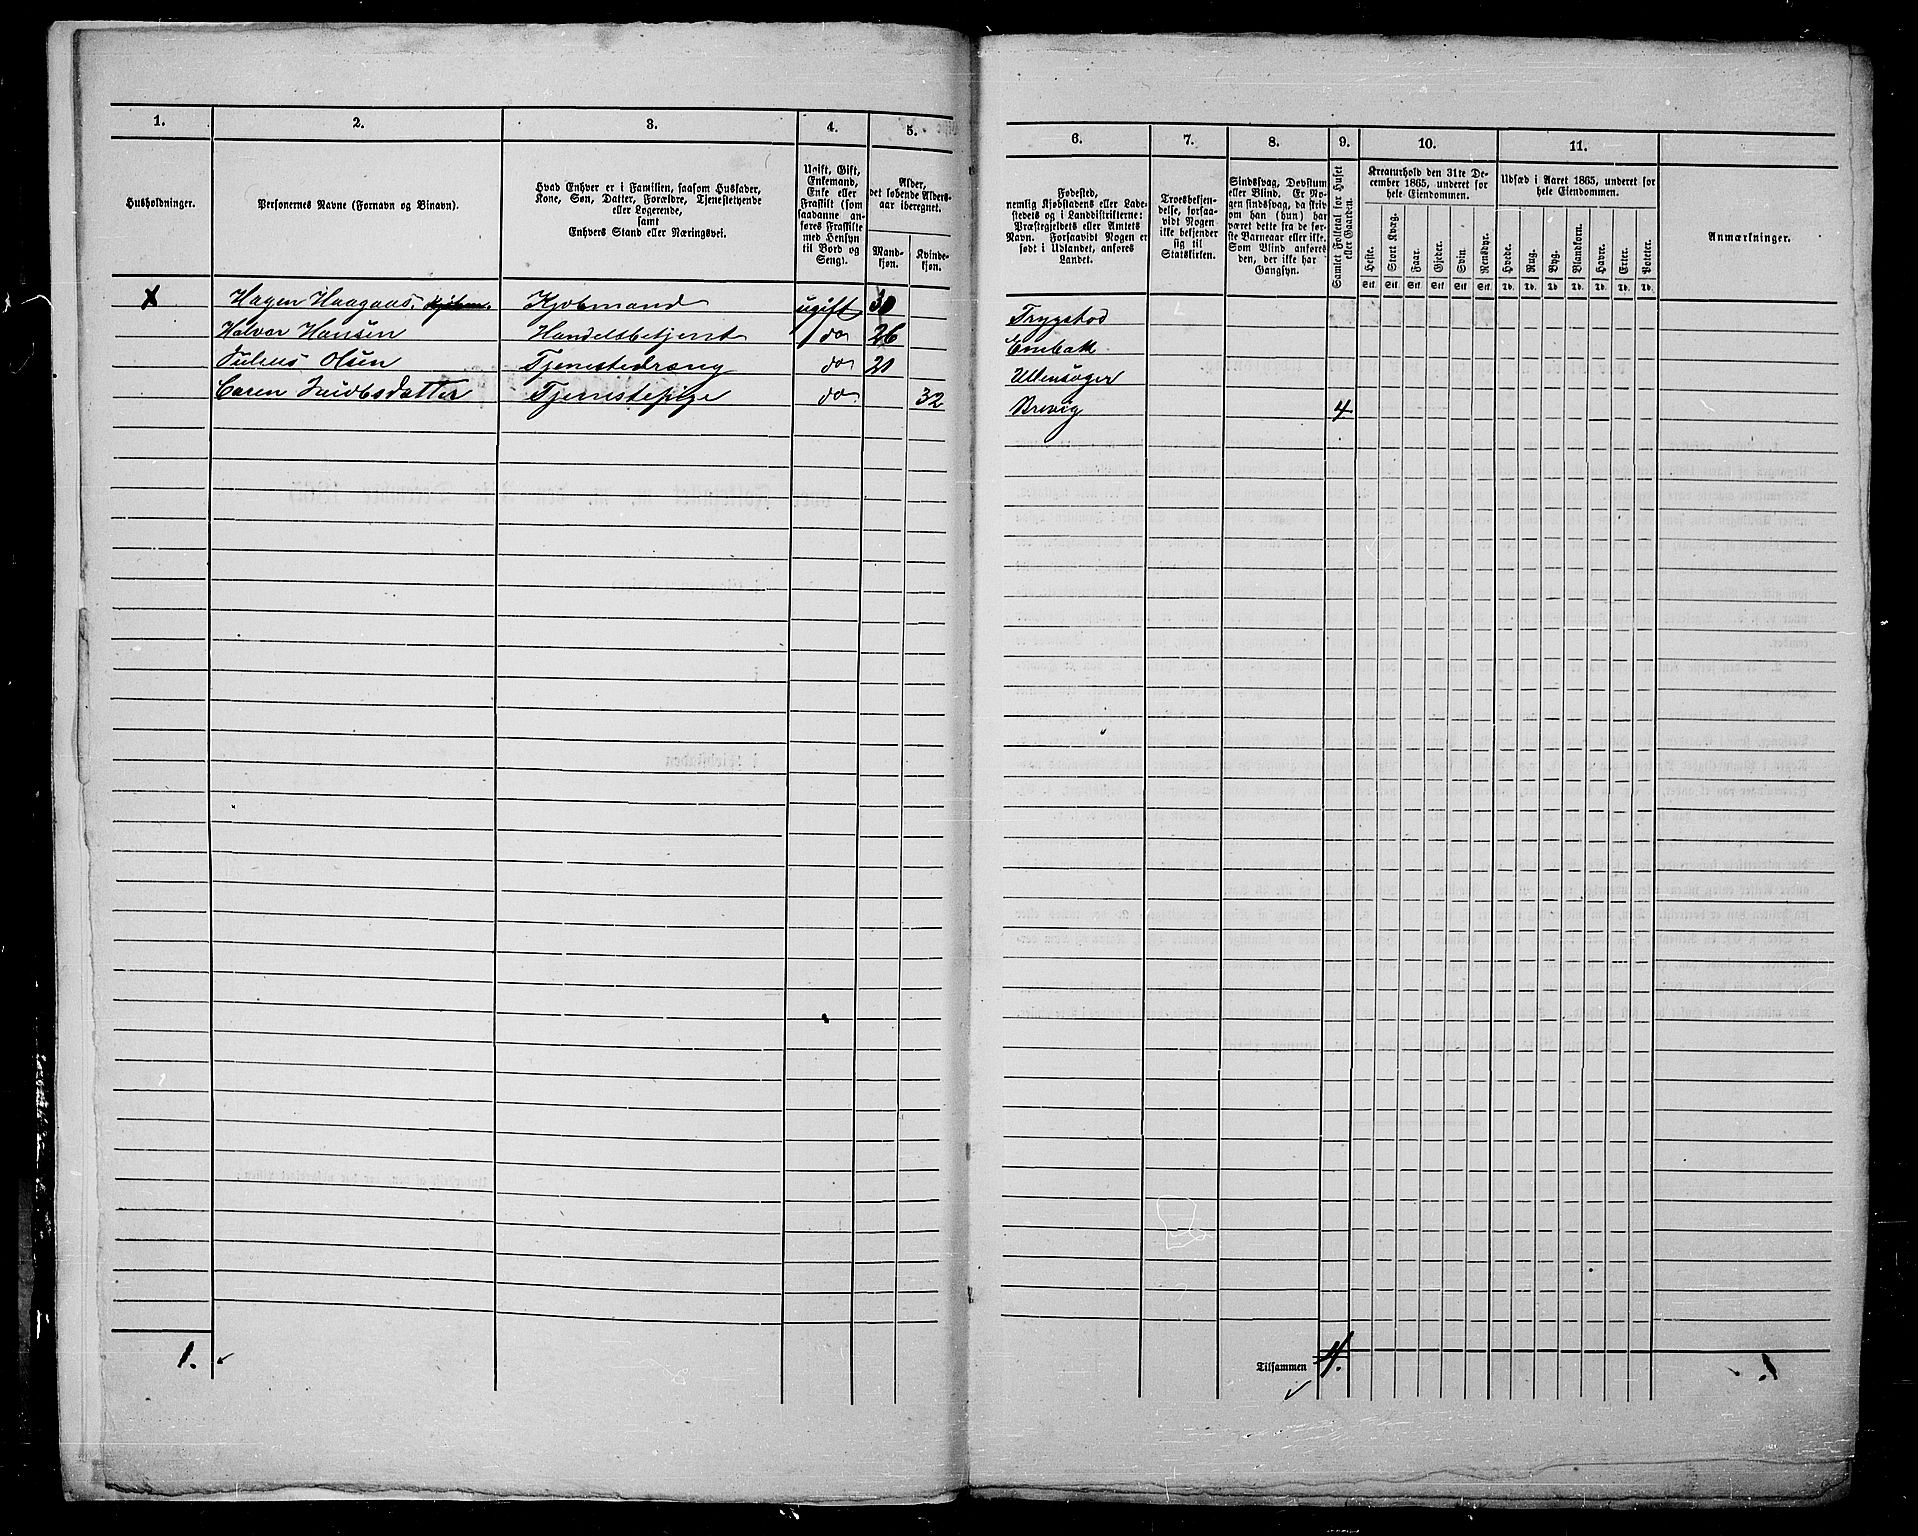 1. 2. 3. 4. 5.
Husholdninger.
Personernes Navne (Fornavn og Binavn).
Hvad Enhver er i Familien, saasom Husfader,
Kone, Søn, Datter, Forældre, Tjenestetyende
eller Logerende,
samt
Enhvers Stand eller Næringsvei.
Ugift, Gift,
Enkemand,
Enke eller
Fraskilt (som
saadanne an-
føres Fraskilte
med Hensyn
til Bord og
Seng).
Alder,
det løbende Alders-
aar iberegnet.
Mand-
kjøn.
Kvinde-
kjøn.
Hagen Haagaas, Kjobmand ugift 30
Halvor Hansen Handelsbetjent do 26
Julius Olsen Tjenestedræng do 21
Caren Tjenestepige do 32
1.
6. 7. 8. 9. 10. 11.
Fødested,
nemlig Kjøbstadens eller Lade-
stedets og i Landdistrikterne:
Præstegjeldets eller Amtets
Navn. Forsaavidt Nogen er
født i Udlandet, anføres
Landet.
Troesbekjen-
delse, forsaa-
vidt Nogen
ikke bekjender
sig til
Statskirken.
Sindssvag, Døvstum
eller Blind. Er No-
gen sindssvag, da skriv
om han (hun) har
været dette fra de før-
ste Barneaar eller ikke.
Som Blind anføres
den, der ikke har
Gangsyn.
Samlet Folketal for Huset
eller Gaarden.
Kreaturhold den 31te De-
cember 1865, underet for
hele Eiendommen.
Heste. Stort Kvæg. Faar. Gjeder. Svin. Rensdyr.
Stk. Stk. Stk. Stk. Stk. Stk.
Udsæd i Aaret 1865, underet for
hele Eiendommen.
Hvede. Rug. Byg. Blandkorn. Havre. Erter. Poteter.
Td. Td. Td. Td. Td. Td. Td.
Anmærkninger.
Trygstad
Enebak
Ullensager
Brevig 4
Tilsammen 4.
1.